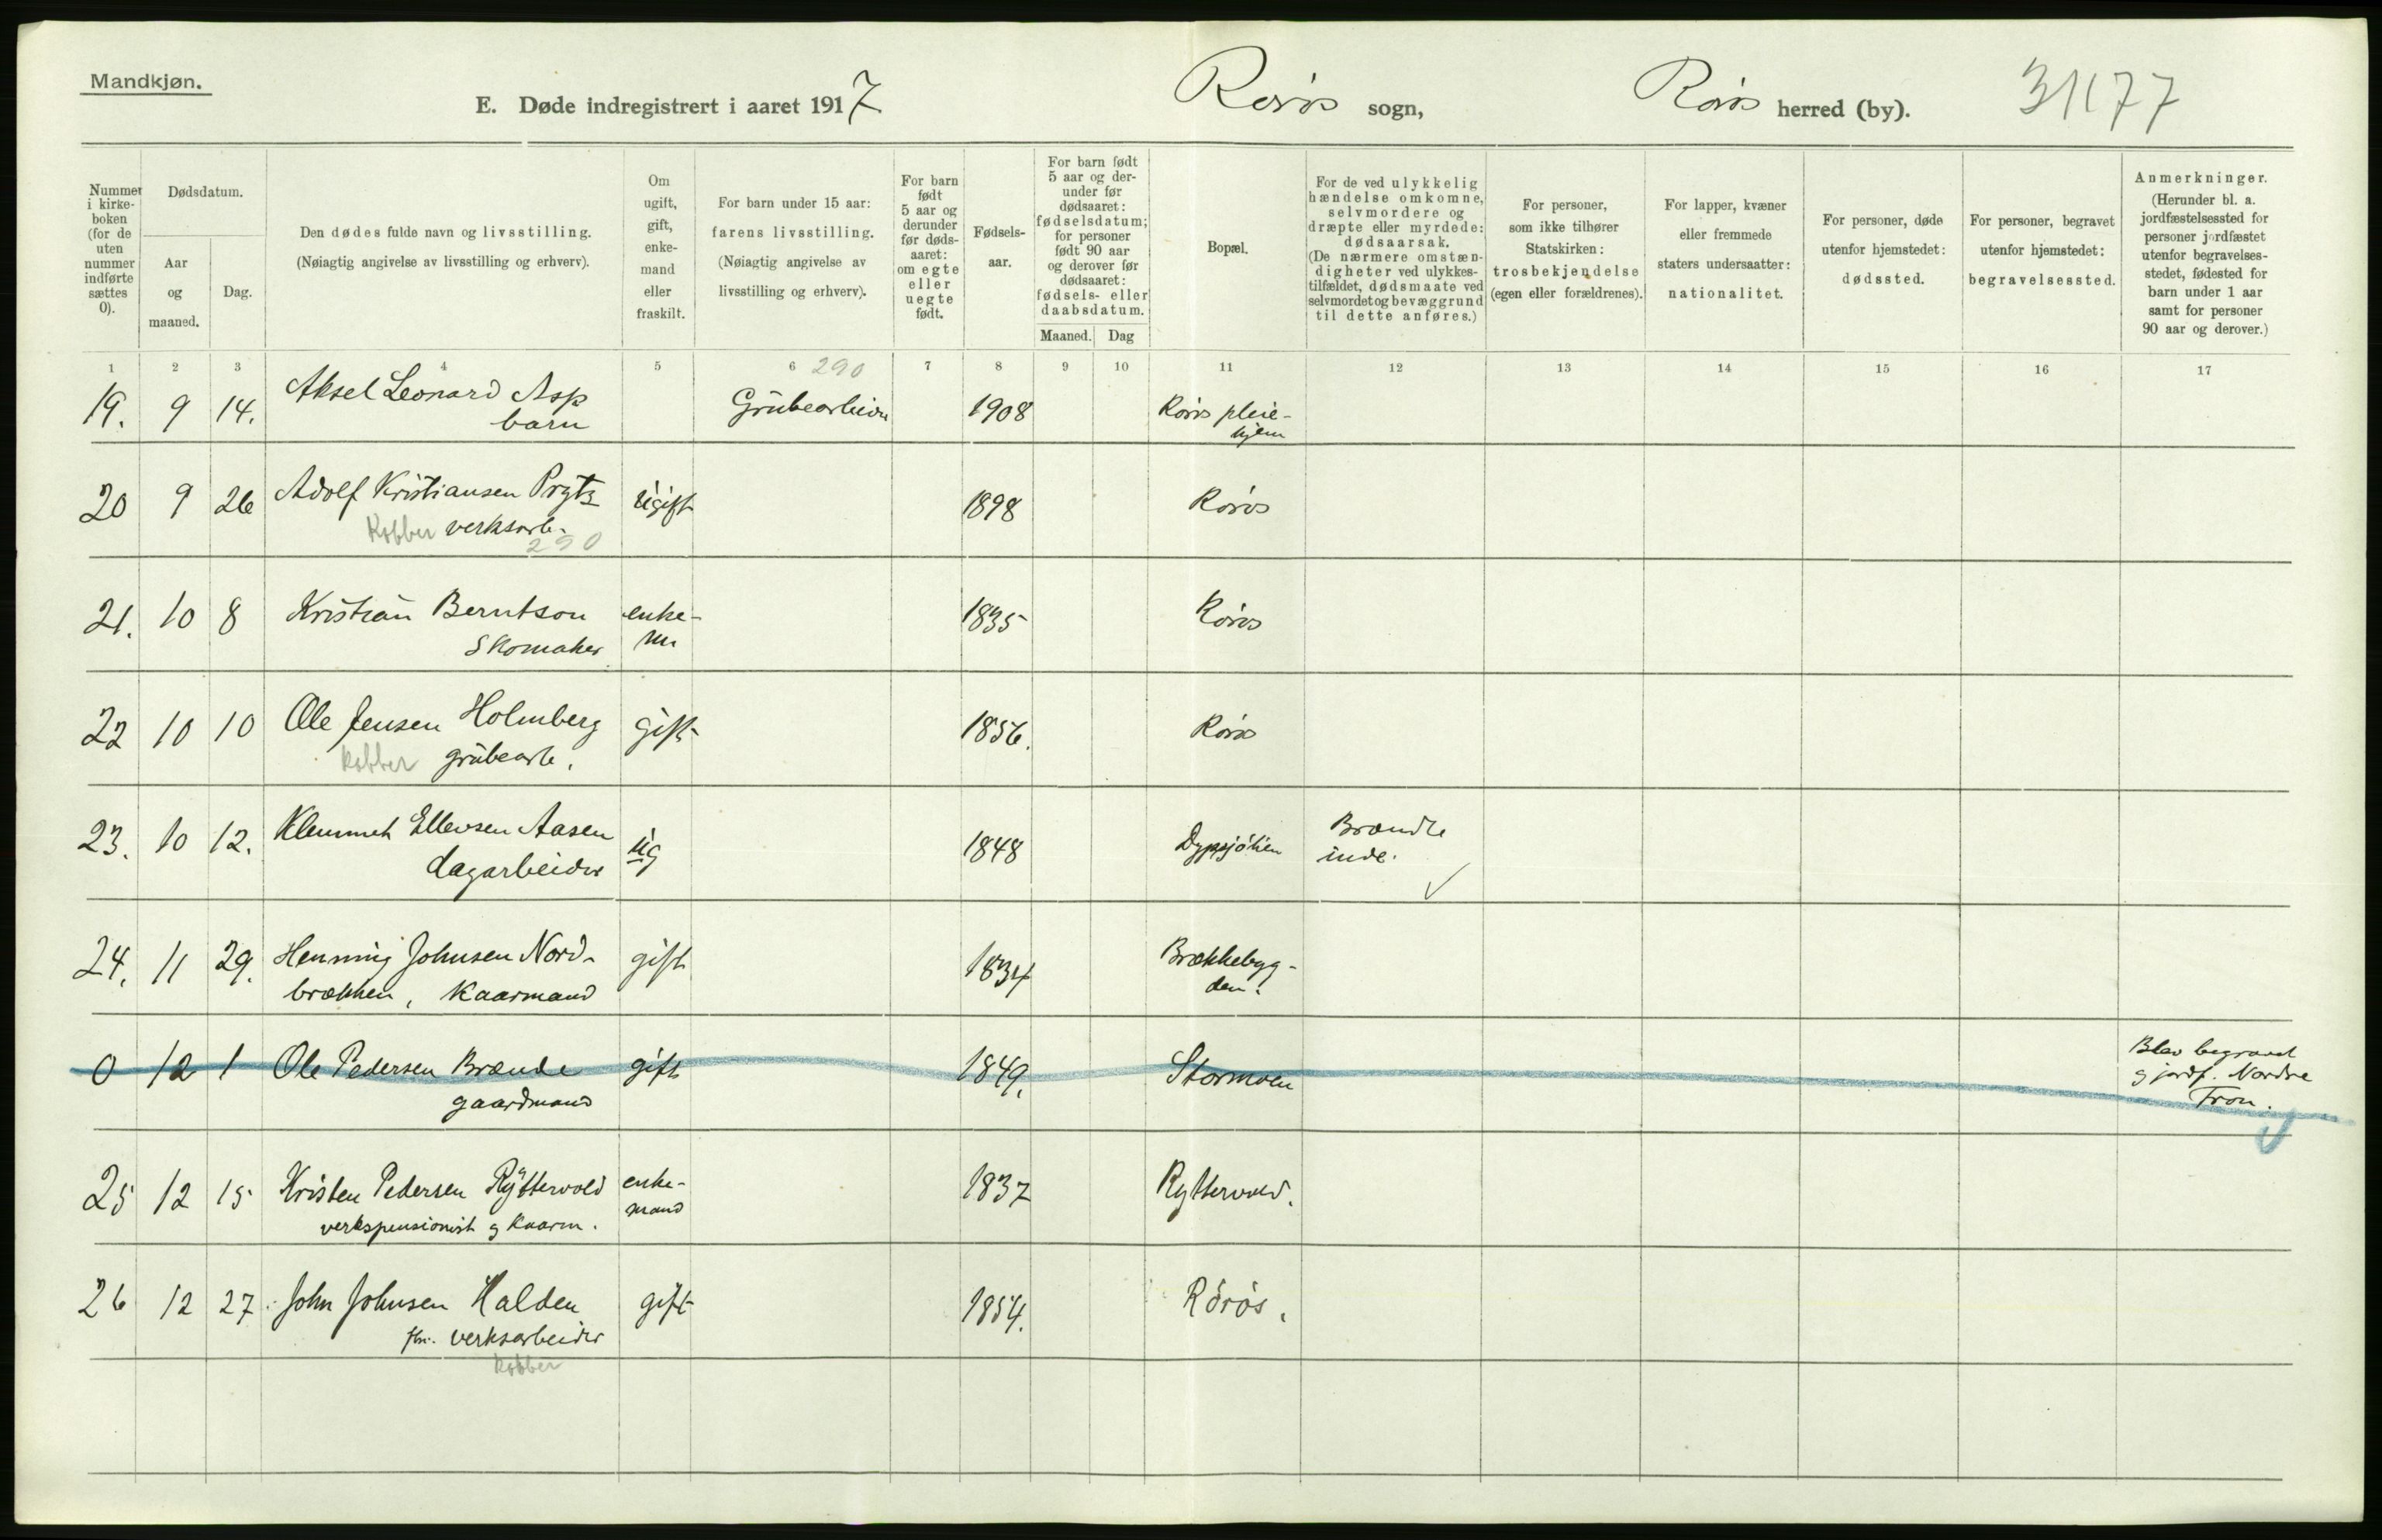 Mandkjøn.
E. Døde indregistrert i aaret 1917 Røros sogn, Røros herred (by). 31177
Nummer i kirke-boken (for de uten nummer indførte sættes 0).
Dødsdatum.
Aar og maaned.
Dag.
Den dødes fulde navn og livsstilling.
(Nøiagtig angivelse av livsstilling og erhverv).
Om ugift, gift, enke-mand eller fraskilt.
For barn under 15 aar: farens livsstilling. (Nøiagtig angivelse av livsstilling og erhverv).
For barn født 5 aar og derunder før døds-aaret: om egte eller uegte født.
Fødsels-aar.
For barn født 5 aar og der-under før dødsaaret: fødselsdatum; for personer født 90 aar og derover før dødsaaret: fødsels- eller daabsdatum.
Maaned. Dag
Bopæl.
For de ved ulykkelig hændelse omkomne, selvmordere og dræpte eller myrdede: dødsaarsak. (De nærmere omstæn-digheter ved ulykkes-tilfældet, dødsmaate ved selvmordet og bevæggrund til dette anføres.)
For personer, som ikke tilhører Statskirken: trosbekjendelse (egen eller forældrenes).
For lapper, kvæner eller fremmede staters undersaatter: nationalitet.
For personer, døde utenfor hjemstedet: dødssted.
For personer, begravet utenfor hjemstedet: begravelsessted.
Anmerkninger. (Herunder bl. a. jordfæstelsessted for personer jordfæstet utenfor begravelses-stedet, fødested for barn under 1 aar samt for personer 90 aar og derover.)
1 2 3 4 5 6 290 7 8 9 10 11 12 13 14 15 16 17
19. 9 14. Aksel Leonard Asp Grubearbeider 1908 Røros pleie-
barn hjem
20 9 26 Adolf Kristiansen Prytz ugift 1898 Røros
Kobber verksarb.
290
21. 10 8 Kristian Berntson enke- 1835 Røros
Skomaker m
22 10 10 Ole Jensen Holmberg gift 1856. Røros
kobber grubearb.
23. 10 12. Klemmet Ellevsen Aasen ug 1848 Dypsjølien Brændte
dagarbeider inde.
24. 11 29. Henning Johnsen Nord- gift 1834 Brækkebyg-
brækken, Kaarmand den.
0 12 1 Ole Pedersen Brænde gift 1849. Stormoen Blev begravet
gaardmand g jordf. Nordre
Fron.
25 12 15 Kristen Pedersen Ryttervold enke- 1837 Ryttervold.
verkspensionist g kaarm. mand
26 12 27. John Johnsen Halden gift 1854. Røros.
fhv. verksarbeider
kobber